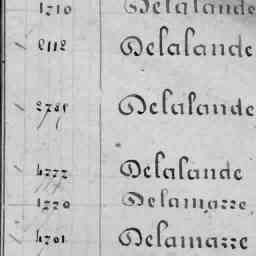 1710 Delalande
2112 Delalande
Delalande
Delalande
1770 Delamarre
1701 Delamarre